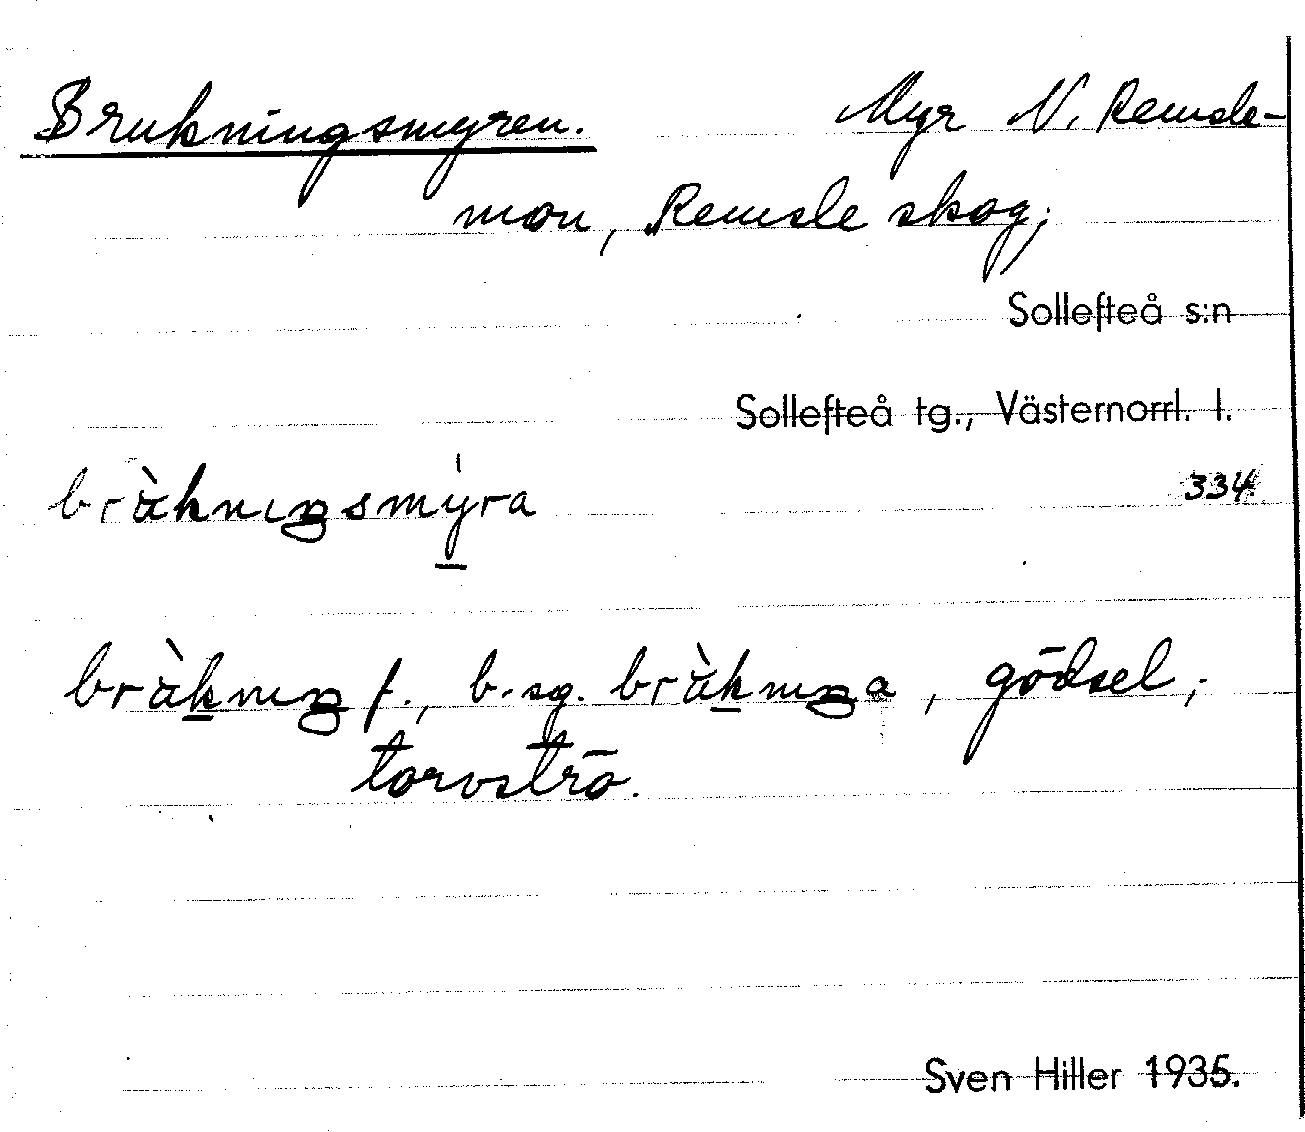 Brukningsmyren. Myr N. Remsle-
mon, Remsle skog;
Sollefteå s:n
Sollefteå tg., Västernorrl. l.
334
bràkniŋsmýra
bràkniŋ f., b. sg. bràkniŋa, gödsel;
torvströ.
Sven Hiller 1935.